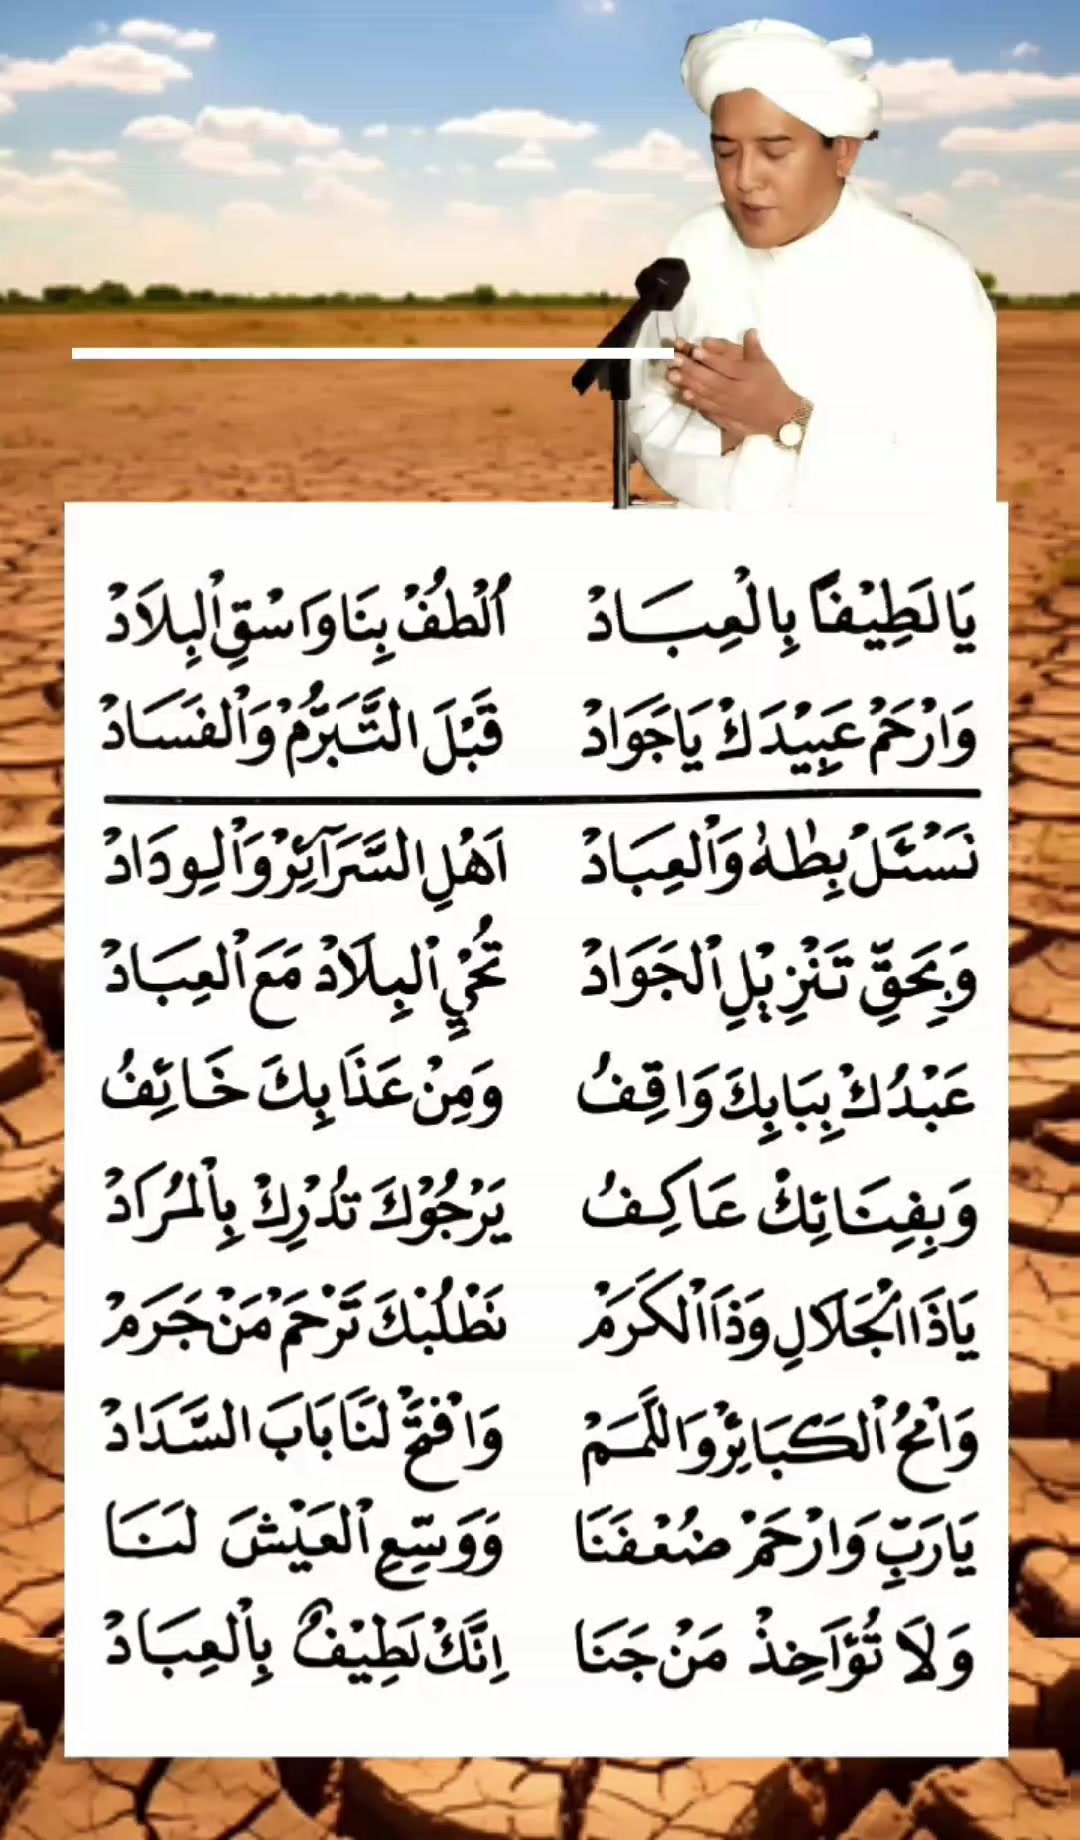 يَا لَطِيْفًا بِالْعِبَادْ اُلْطُفْ بِنَا وَاسْقِ الْبِلَادْ
وَارْحَمْ عَبِيْدَكْ يَاجَوَادْ قَبْلَ التَّبَرُّمْ وَالْفَسَادْ
نَسْئَلْ بِطٰهٰ وَالْعِبَادْ اَهْلِ السَّرَآئِرْ وَالْوِدَادْ
وَبِحَقِّ تَنْزِيْلِ الْجَوَادْ تُحْيِي الْبِلَادْ مَعَ الْعِبَادْ
عَبْدُكْ بِبَابِكَ وَاقِفُ وَمِنْ عَذَابِكَ خَائِفُ
وَبِفِنَائِكْ عَاكِفُ يَرْجُوْكَ تُدْرِكْ بِالْمُرَادْ
يَاذَا الْجَلَالِ وَذَا الْكَرَمْ نَطْلُبْكَ تَرْحَمْ مَنْ جَرَمْ
وَامْحُ الْكَبَائِرْ وَاللَّمَمْ وَافْتَحْ لَنَا بَابَ السَّدَادْ
يَارَبِّ وَارْحَمْ ضُعْفَنَا وَوَسِّعِ الْعَيْشَ لَنَا
وَلَا تُؤَاخِذْ مَنْ جَنَا اِنَّكْ لَطِيْفٌ بِالْعِبَادْ